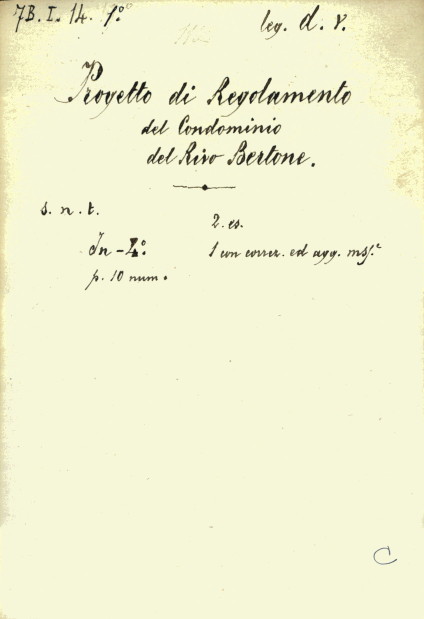 7B. I. 14. 1.º leg. d. r.
Progetto di Regolamento
del Condominio
del Rivo Bertone.
s. n. t.
2. es.
In-4.º 1 con correz. ed agg. mss.
p. 10 num.
C